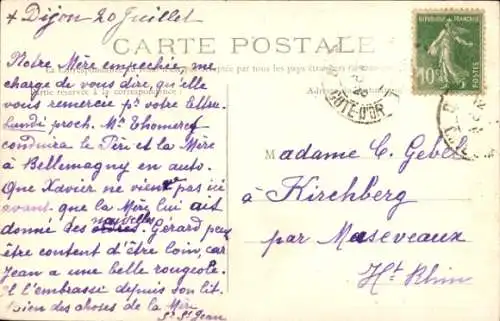 + Dijon 20 Juillet
CARTE POSTALE
Notre Mère empechée me
charge de vous dire, qu'elle
vous remercie pr votre lettre.
Lundi proch. Mr
conduira le Père et la Mère
à Bellemagny en auto.
Que Xavier ne vienne pas ici
avant que la Mère lui ait
nouvelles
donné des ordres. Gérard peut
être content d'être loin, car
Jean a une belle rougeole.
Il l'embrasse depuis son lit.
Bien des choses de la Mère
Sr St Jean
La Correspondance
tous les pays étrangers
Partie réservée à la correspondance
RÉPUBLIQUE FRANÇAISE
10c
POSTES
CÔTE-D'OR
Madame C. Gebel
à Kirchberg
par Maseveaux
Ht Rhin